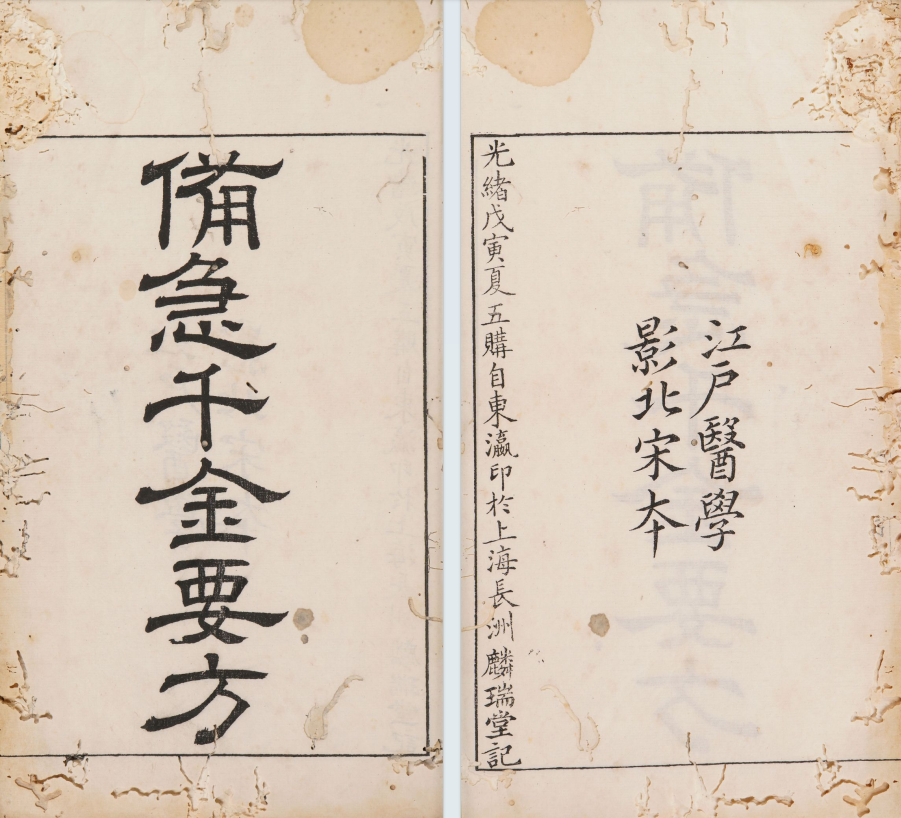 江户醫學
影北宋本
光緒戊寅夏五購自東瀛印於上海長洲麟瑞堂記
備急千金要方